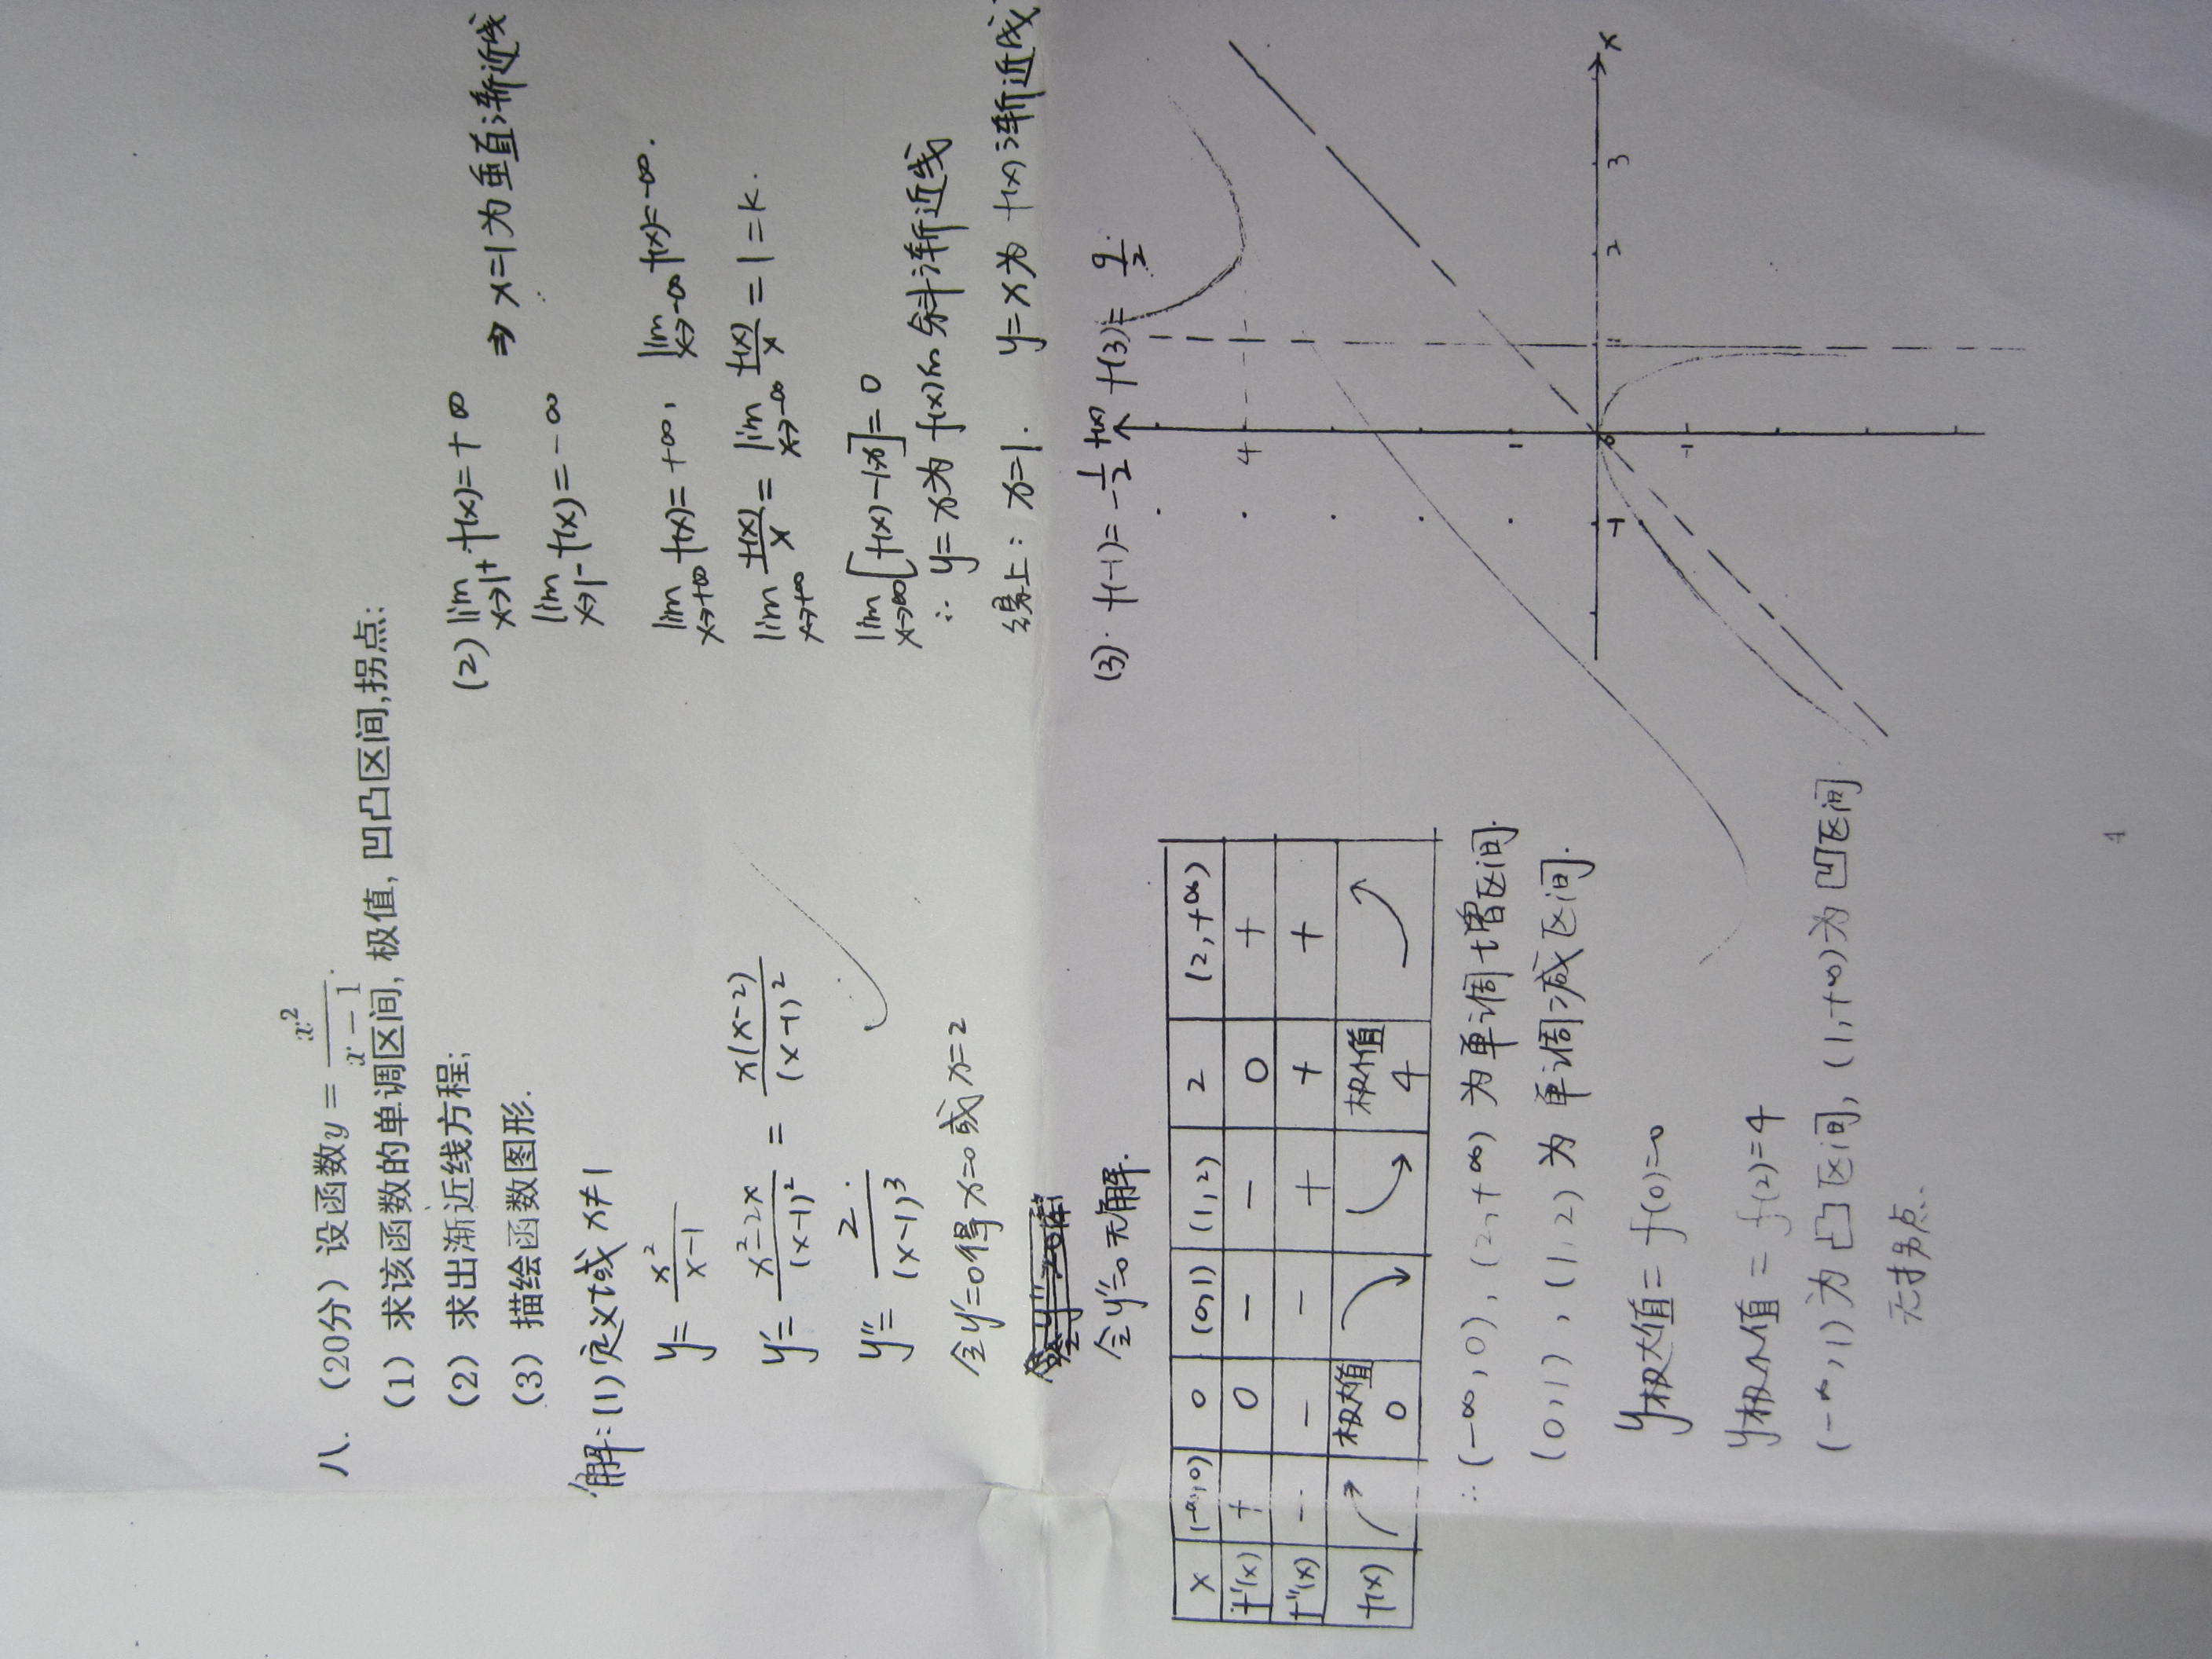 八. （20分）设函数y = x²/(x − 1).
（1）求该函数的单调区间, 极值, 凹凸区间,拐点;
（2）求出渐近线方程;
（3）描绘函数图形.
解: (1) 定义域 x≠1
y = x²/(x-1)
y' = (x²-2x)/(x-1)² = x(x-2)/(x-1)²
y'' = 2/(x-1)³
令y'=0得 x=0 或 x=2
令y''=0 无解.
x (-∞,0) 0 (0,1) (1,2) 2 (2,+∞)
f'(x) + 0 − − 0 +
f''(x) − − − + + +
f(x) 极大值 0 极小值 4
∴ (-∞,0), (2,+∞) 为单调增区间.
(0,1), (1,2) 为 单调减区间.
y极大值 = f(0)=0
y极小值 = f(2)=4
(-∞,1)为 凸 区间, (1,+∞)为 凹区间
无拐点.
(2) lim x→1⁺ f(x) = +∞
⇒ x=1 为垂直渐近线
lim x→1⁻ f(x) = -∞
lim x→+∞ f(x) = +∞, lim x→-∞ f(x) = -∞.
lim x→+∞ f(x)/x = lim x→-∞ f(x)/x = 1 = k.
lim x→∞ [f(x)-1·x] = 0
∴ y=x为 f(x)的 斜渐近线
综上: x=1. y=x为 f(x)渐近线
(3). f(-1) = -1/2 f(3) = 9/2
f(x)
4
1
-1 0 1 2 3 x
-1
4